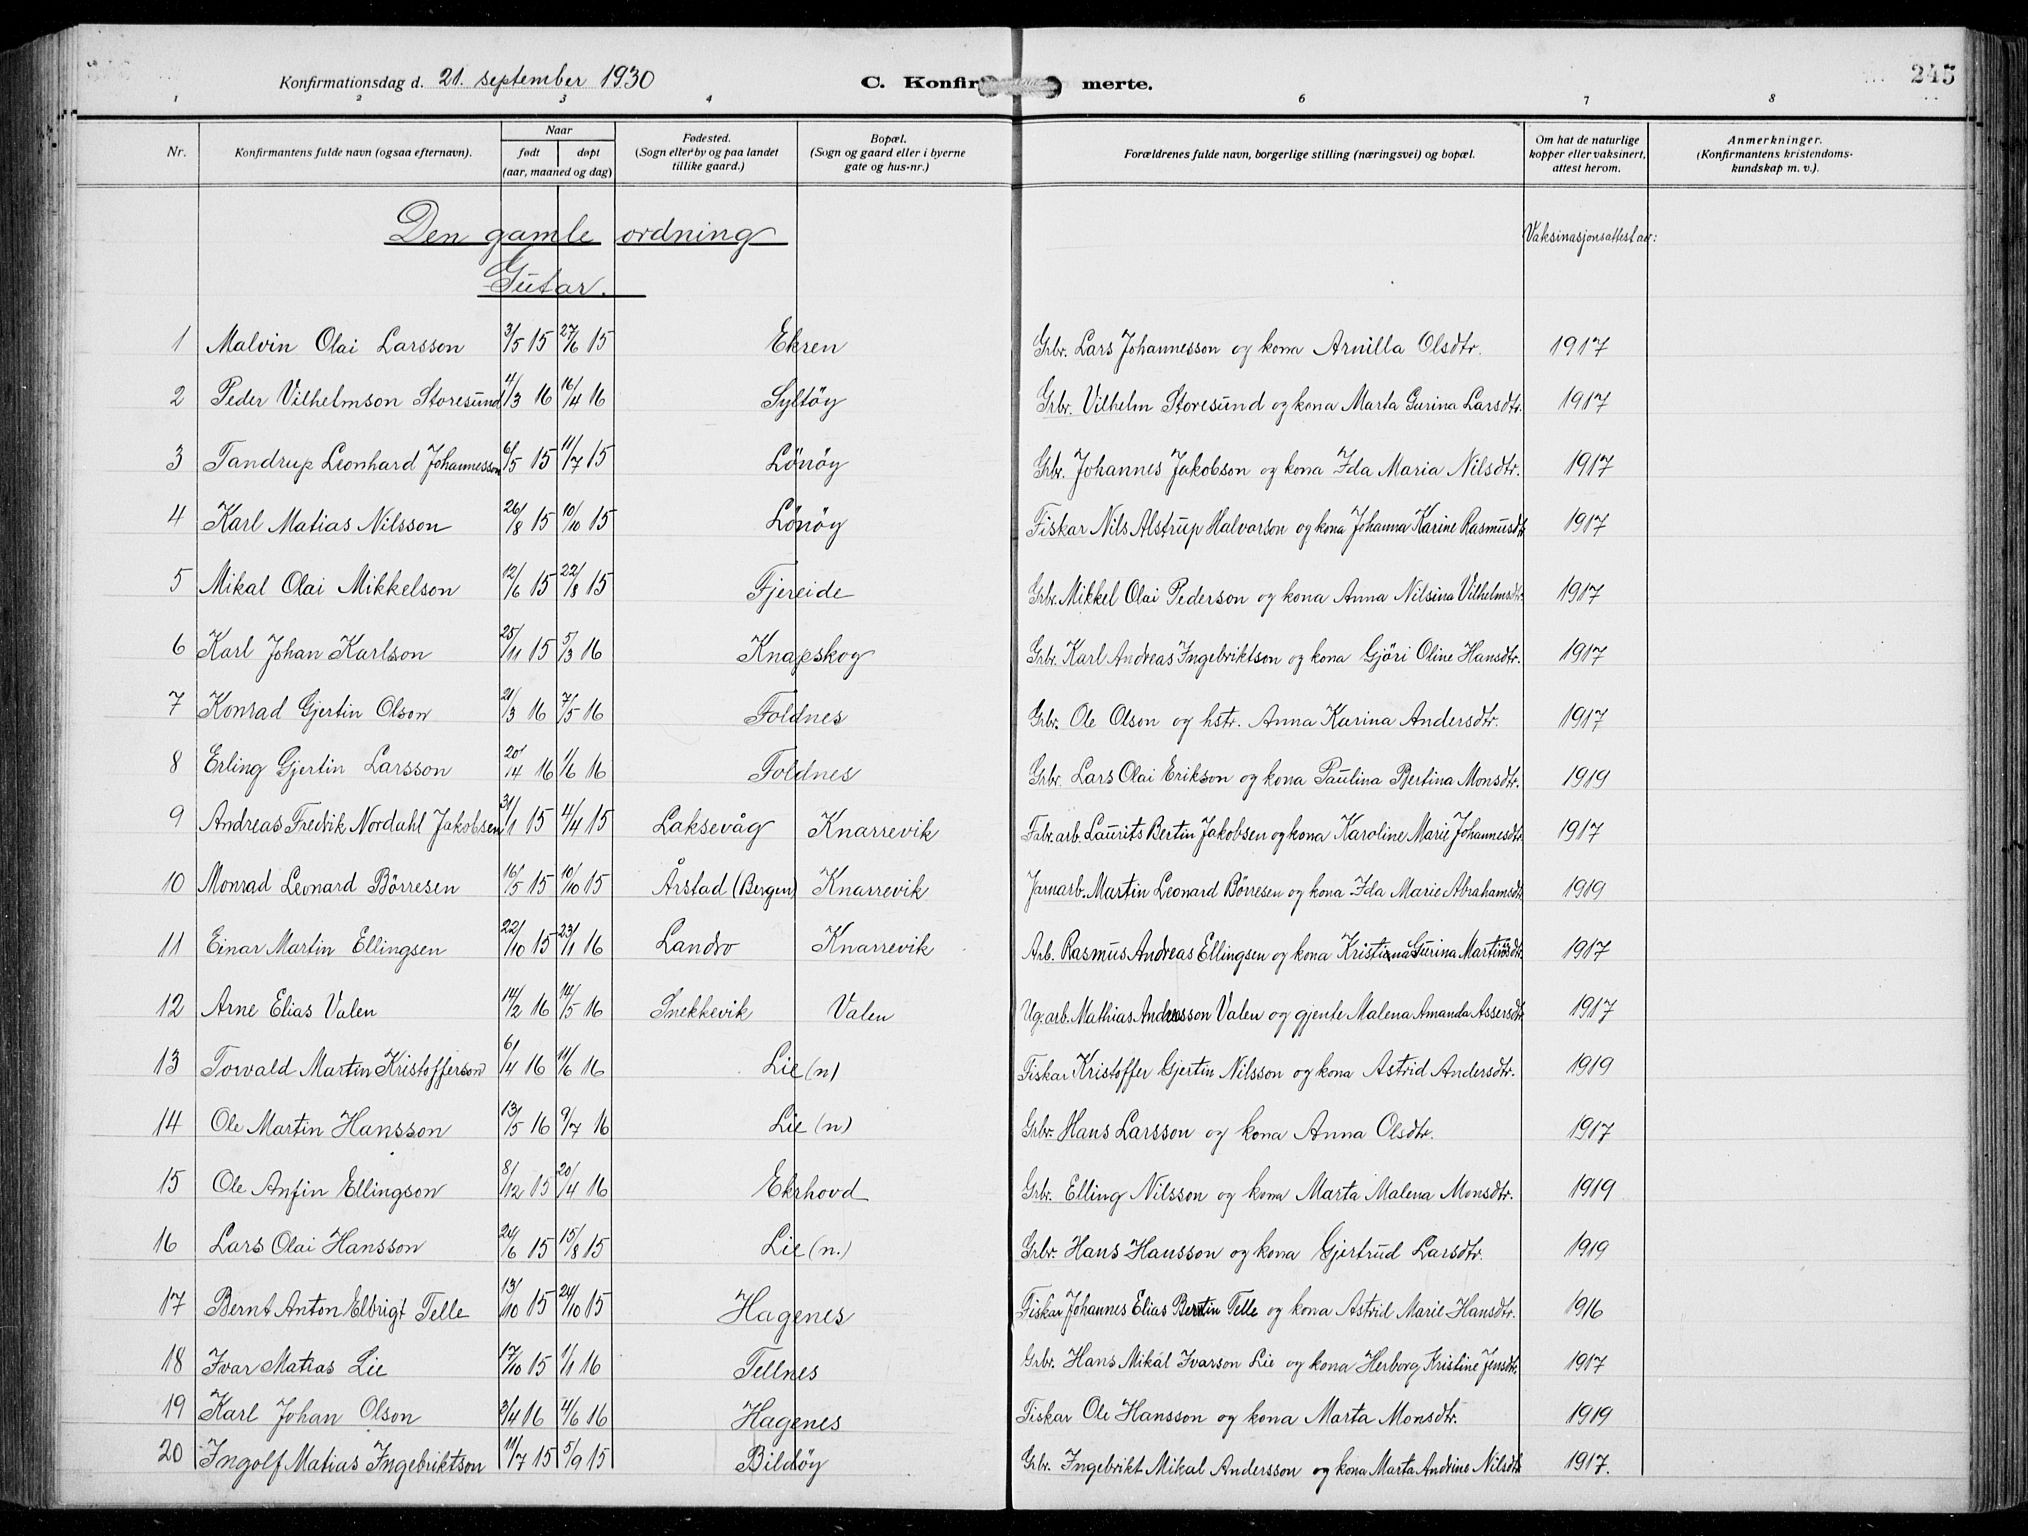 Konfirmationsdag d. 21. september 1930 C. Konfirmerte. 245
1 2 3 4 6 7 8
Nr. Konfirmantens fulde navn (ogsaa efternavn). Naar født døpt (aar, maaned og dag) Fødested. (Sogn eller by og paa landet tillike gaard.) Bopæl. (Sogn og gaard eller i byerne gate og hus-nr.) Forældrenes fulde navn, borgerlige stilling (næringsvei) og bopæl. Om hat de naturlige kopper eller vaksinert, attest herom. Anmerkninger. (Konfirmantens kristendoms-kundskap m. v.).
Den gamle ordning Vaksinasjonsattest av:
Gutar.
1 Malvin Olai Larsson 3/5 15 27/6 15 Ekren Grbr. Lars Johannesson og kona Arnilla Olsdtr. 1917
2 Peder Vilhelmson Storesund 4/3 16 16/4 16 Syltöy Grbr. Vilhelm Storesund og kona Marta Gurina Larsdtr. 1917
3 Tandrup Leonhard Johannesson 6/5 15 11/7 15 Lönöy Grbr. Johannes Jakobson og kona Ida Maria Nilsdtr. 1917
4 Karl Matias Nilsson 26/8 15 10/10 15 Lönöy Fiskar Nils Alstrup Halvorson og kona Johanna Karine Rasmusdtr 1917
5 Mikal Olai Mikkelson 12/6 15 22/8 15 Fjereide Grbr. Mikkel Olai Pederson og kona Anna Nilsina Vilhelmsdtr. 1917
6 Karl Johan Karlson 25/11 15 5/3 16 Knapskog Grbr. Karl Andreas Ingebriktson og kona Gjöri Oline Hansdtr. 1917
7 Konrad Gjertin Olson 21/3 16 7/5 16 Foldnes Grbr. Ole Olson og hstr. Anna Karina Andersdtr. 1917
8 Erling Gjertin Larsson 20/4 16 1/6 16 Foldnes Grbr. Lars Olai Erikson og kona Paulina Bertina Monsdtr. 1919
9 Andreas Fredrik Nordahl Jakobsen 31/1 15 4/4 15 Laksevåg Knarrevik Fabr.arb. Laurits Bertin Jakobsen og kona Karoline Marie Johannesdtr. 1917
10 Monrad Leonard Börresen 16/5 15 10/10 15 Årstad (Bergen) Knarrevik Jarnarb. Martin Leonard Börresen og kona Ida Marie Abrahamsdtr 1919
11 Einar Martin Ellingsen 22/10 15 23/1 16 Landro Knarrevik Arb. Rasmus Andreas Ellingsen og kona Kristina Gurina Martinsdtr. 1917
12 Arne Elias Valen 14/2 16 14/5 16 Snekkevik Valen Ug.arb. Mathias Andresson Valen og gjente Malena Amanda Assersdtr 1917
13 Torvald Martin Kristofferson 6/4 16 11/6 16 Lie (n) Fiskar Kristoffer Gjertin Nilsson og kona Astrid Andersdtr. 1919
14 Ole Martin Hansson 13/5 16 9/7 16 Lie (n) Grbr. Hans Larsson og kona Anna Olsdtr. 1917
15 Ole Anfin Ellingson 8/12 15 20/4 16 Ekrhovd Grbr. Elling Nilsson og kona Marta Malena Monsdtr. 1919
16 Lars Olai Hansson 24/6 15 15/8 15 Lie (n.) Grbr. Hans Hansson og kona Gjertrud Larsdtr. 1919
17 Bernt Anton Elbrigt Telle 13/10 15 24/10 15 Hagenes Fiskar Johannes Elias Berntin Telle og kona Astrid Marie Hansdtr. 1916
18 Ivar Matias Lie 17/10 15 1/1 16 Tellnes Grbr. Hans Mikal Ivarson Lie og kona Herborg Kristine Jensdtr. 1917
19 Karl Johan Olson 3/4 16 4/6 16 Hagenes Fiskar Ole Hansson og kona Marta Monsdtr. 1919
20 Ingolf Matias Ingebriktson 11/7 15 5/9 15 Bildöy Grbr. Ingebrikt Mikal Andersson og kona Marta Andrine Nilsdtr 1917.